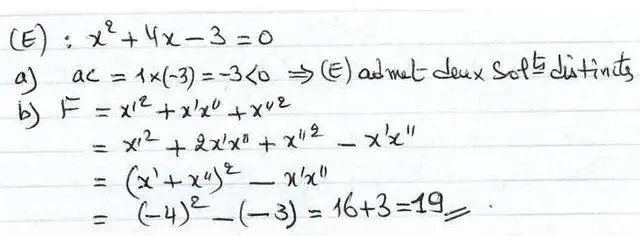 (E) : x² + 4x - 3 = 0
a) ac = 1×(-3) = -3 < 0 ⇒ (E) admet deux solᵗˢ distincts
b) F = x'² + x'x'' + x''²
= x'² + 2x'x'' + x''² - x'x''
= (x' + x'')² - x'x''
= (-4)² - (-3) = 16 + 3 = 19 .